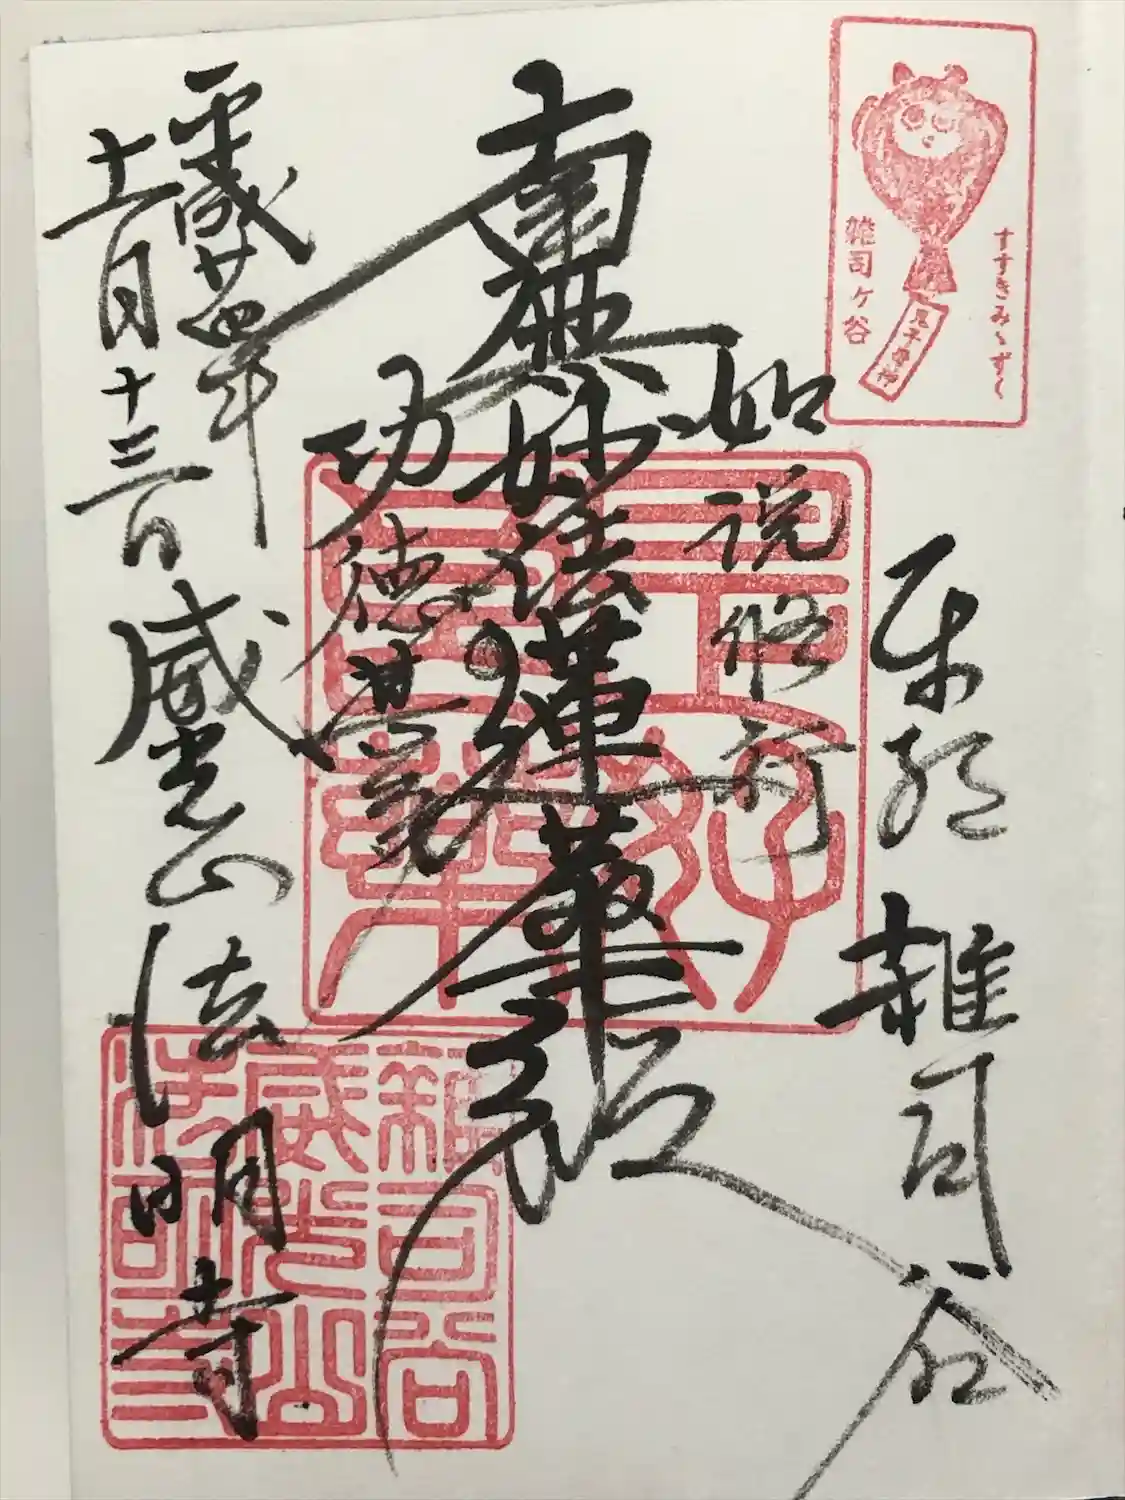 すすきみゝずく
雑司ケ谷
鬼子母神
東都 雜司谷
如説修行
南無妙法蓮華経
功徳甚
平成廿四年
十一月十三日 威光山 法明寺
雑司谷
威光山
法明寺